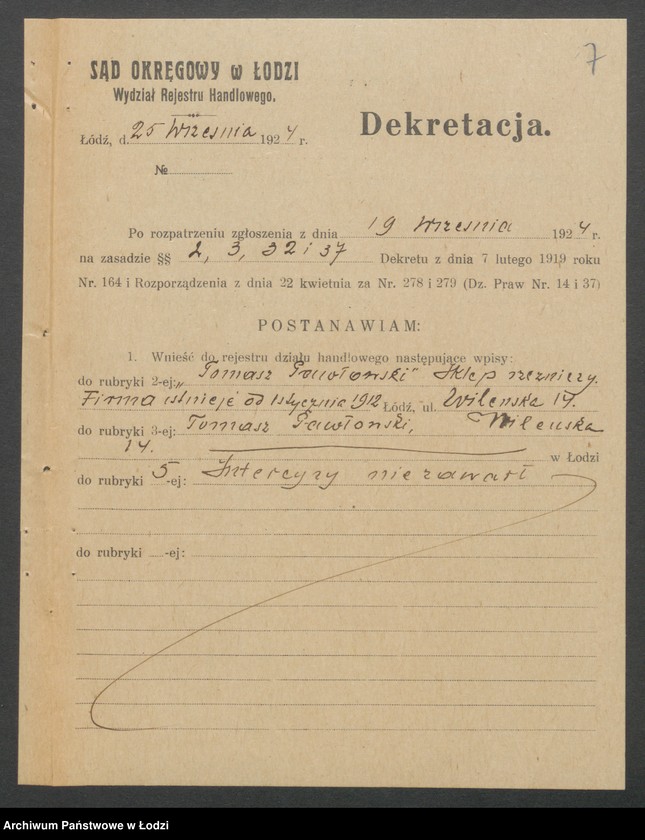 7
SĄD OKRĘGOWY w ŁODZI
Wydział Rejestru Handlowego.
Łódź, d. 25 Września 1924 r.
Dekretacja.
№
Po rozpatrzeniu zgłoszenia z dnia 19 Września 1924 r.
na zasadzie §§ 2, 3, 32 i 37 Dekretu z dnia 7 lutego 1919 roku
Nr. 164 i Rozporządzenia z dnia 22 kwietnia za Nr. 278 i 279 (Dz. Praw Nr. 14 i 37)
POSTANAWIAM:
1. Wnieść do rejestru działu handlowego następujące wpisy:
do rubryki 2-ej: „Tomasz Pawłowski" Sklep rzeźniczy.
Firma istnieje od 1 stycznia 1912 Łódź, ul. Wileńska 14.
do rubryki 3-ej: Tomasz Pawłowski, Wileńska
14. w Łodzi
do rubryki 5-ej: Intercyzy nie zawarł
do rubryki -ej:
Archiwum Państwowe w Łodzi